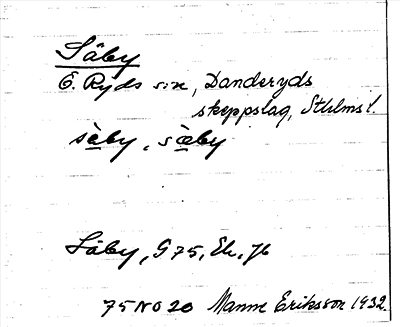 Säby
Ö. Ryds sn, Danderyds
skeppslag, Sthlms l.
sàby, sæby
Säby, G 75, Ek. Jb
75 NO 20 Manne Eriksson 1932.